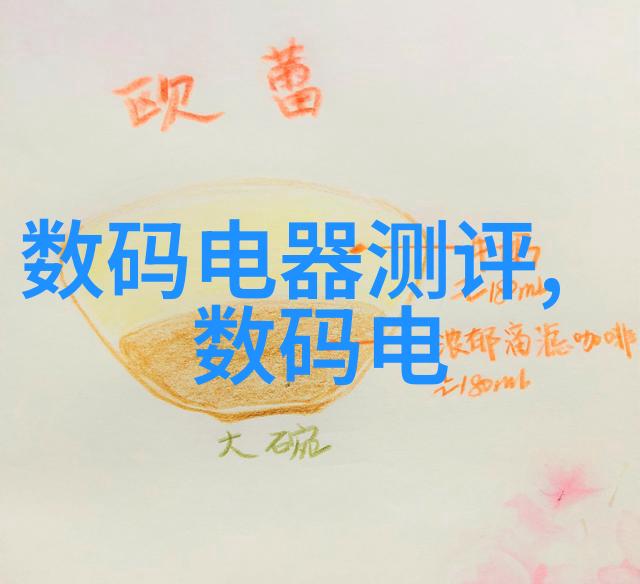 欧 蕾
数码电器测评,
≈180ml
数码电
浓郁滴滤咖啡
≈180ml
大碗